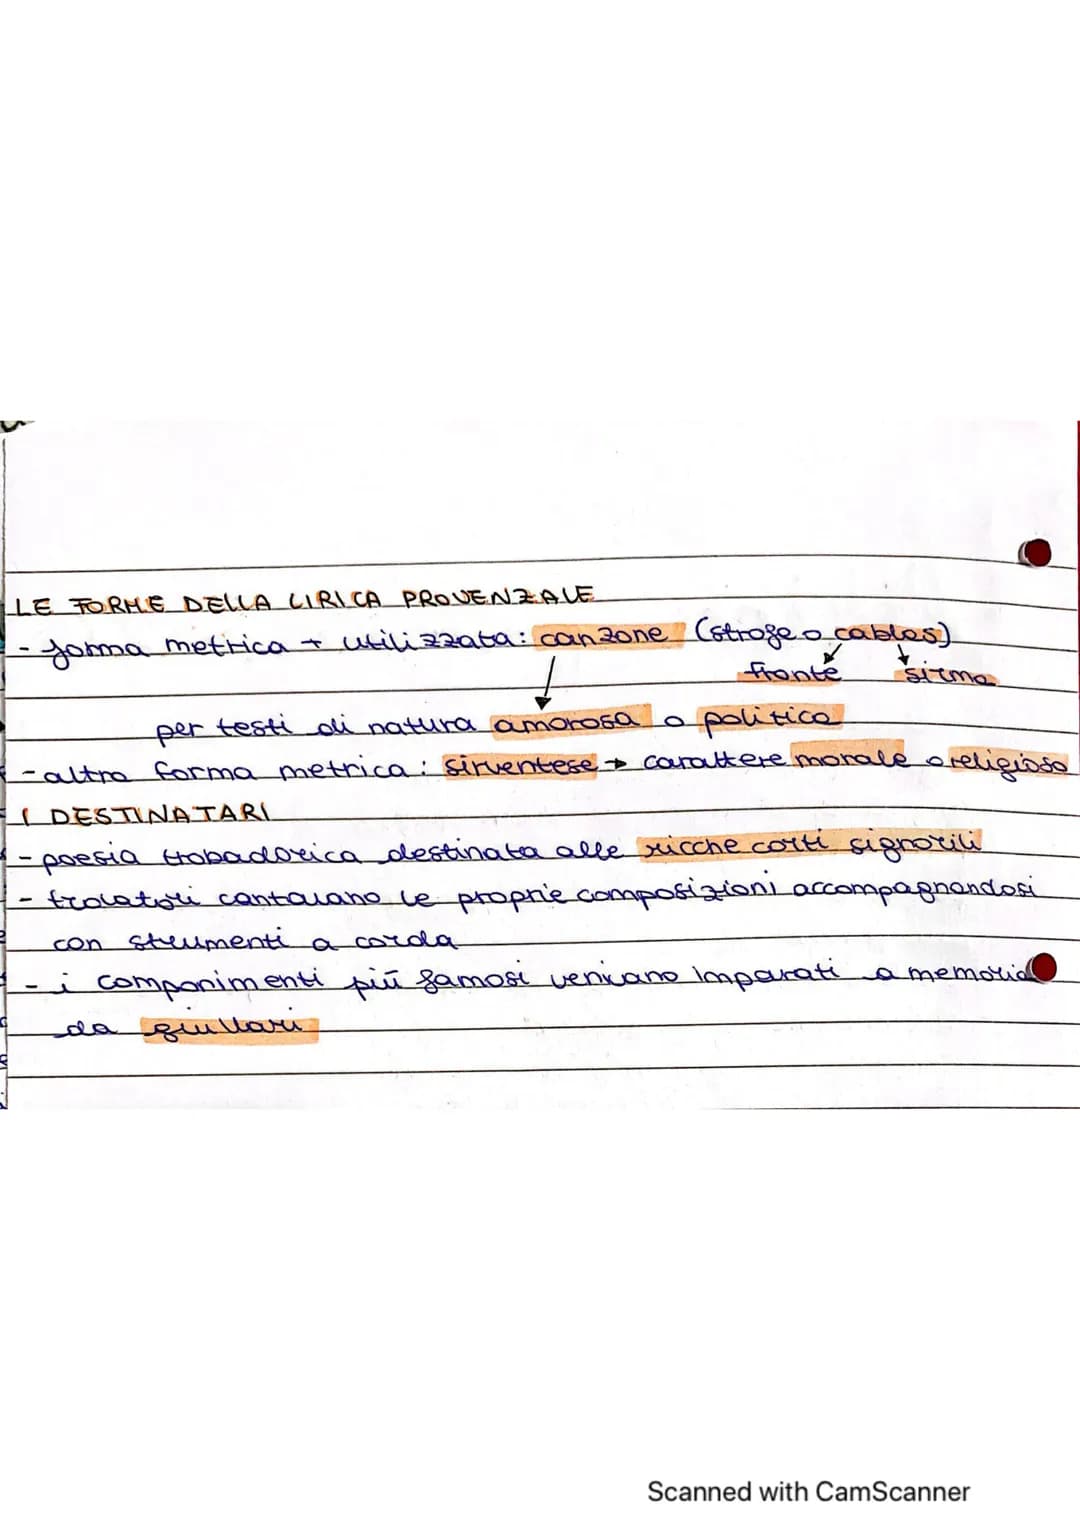 LE FORME DELLA LIRICA PROVENZALE
- forma metrica + utilizzata: canzone (strofe o cablas)
fronte sirma
per testi di natura amorosa o politica
- altra forma metrica: sirventese → carattere morale o religioso
I DESTINATARI
- poesia trobadorica destinata alle ricche corti signorili
- trovatori cantavano le proprie composizioni accompagnandosi
con strumenti a corda
- i componimenti più famosi venivano imparati a memoria
da giullari
Scanned with CamScanner